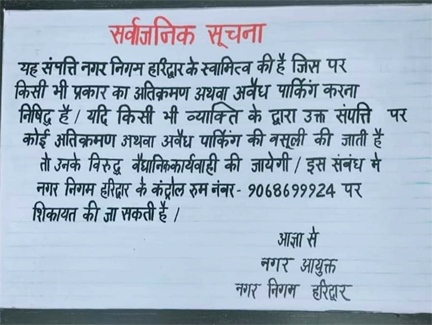 सर्वाजनिक सूचना
यह संपत्ति नगर निगम हरिद्वार के स्वामित्व की है जिस पर
किसी भी प्रकार का अतिक्रमण अथवा अवैध पार्किंग करना
निषिद्ध है / यदि किसी भी व्याक्ति के द्वारा उक्त संपत्ति पर
कोई अतिक्रमण अथवा अवैध पार्किंग की वसूली की जाती है
तो उनके विरुद्ध वैधानिक कार्यवाही की जायेगी / इस संबंध मे
नगर निगम हरिद्वार के कंट्रोल रुम नंबर - 9068699924 पर
शिकायत की जा सकती है /
आज्ञा से
नगर आयुक्त
नगर निगम हरिद्वार